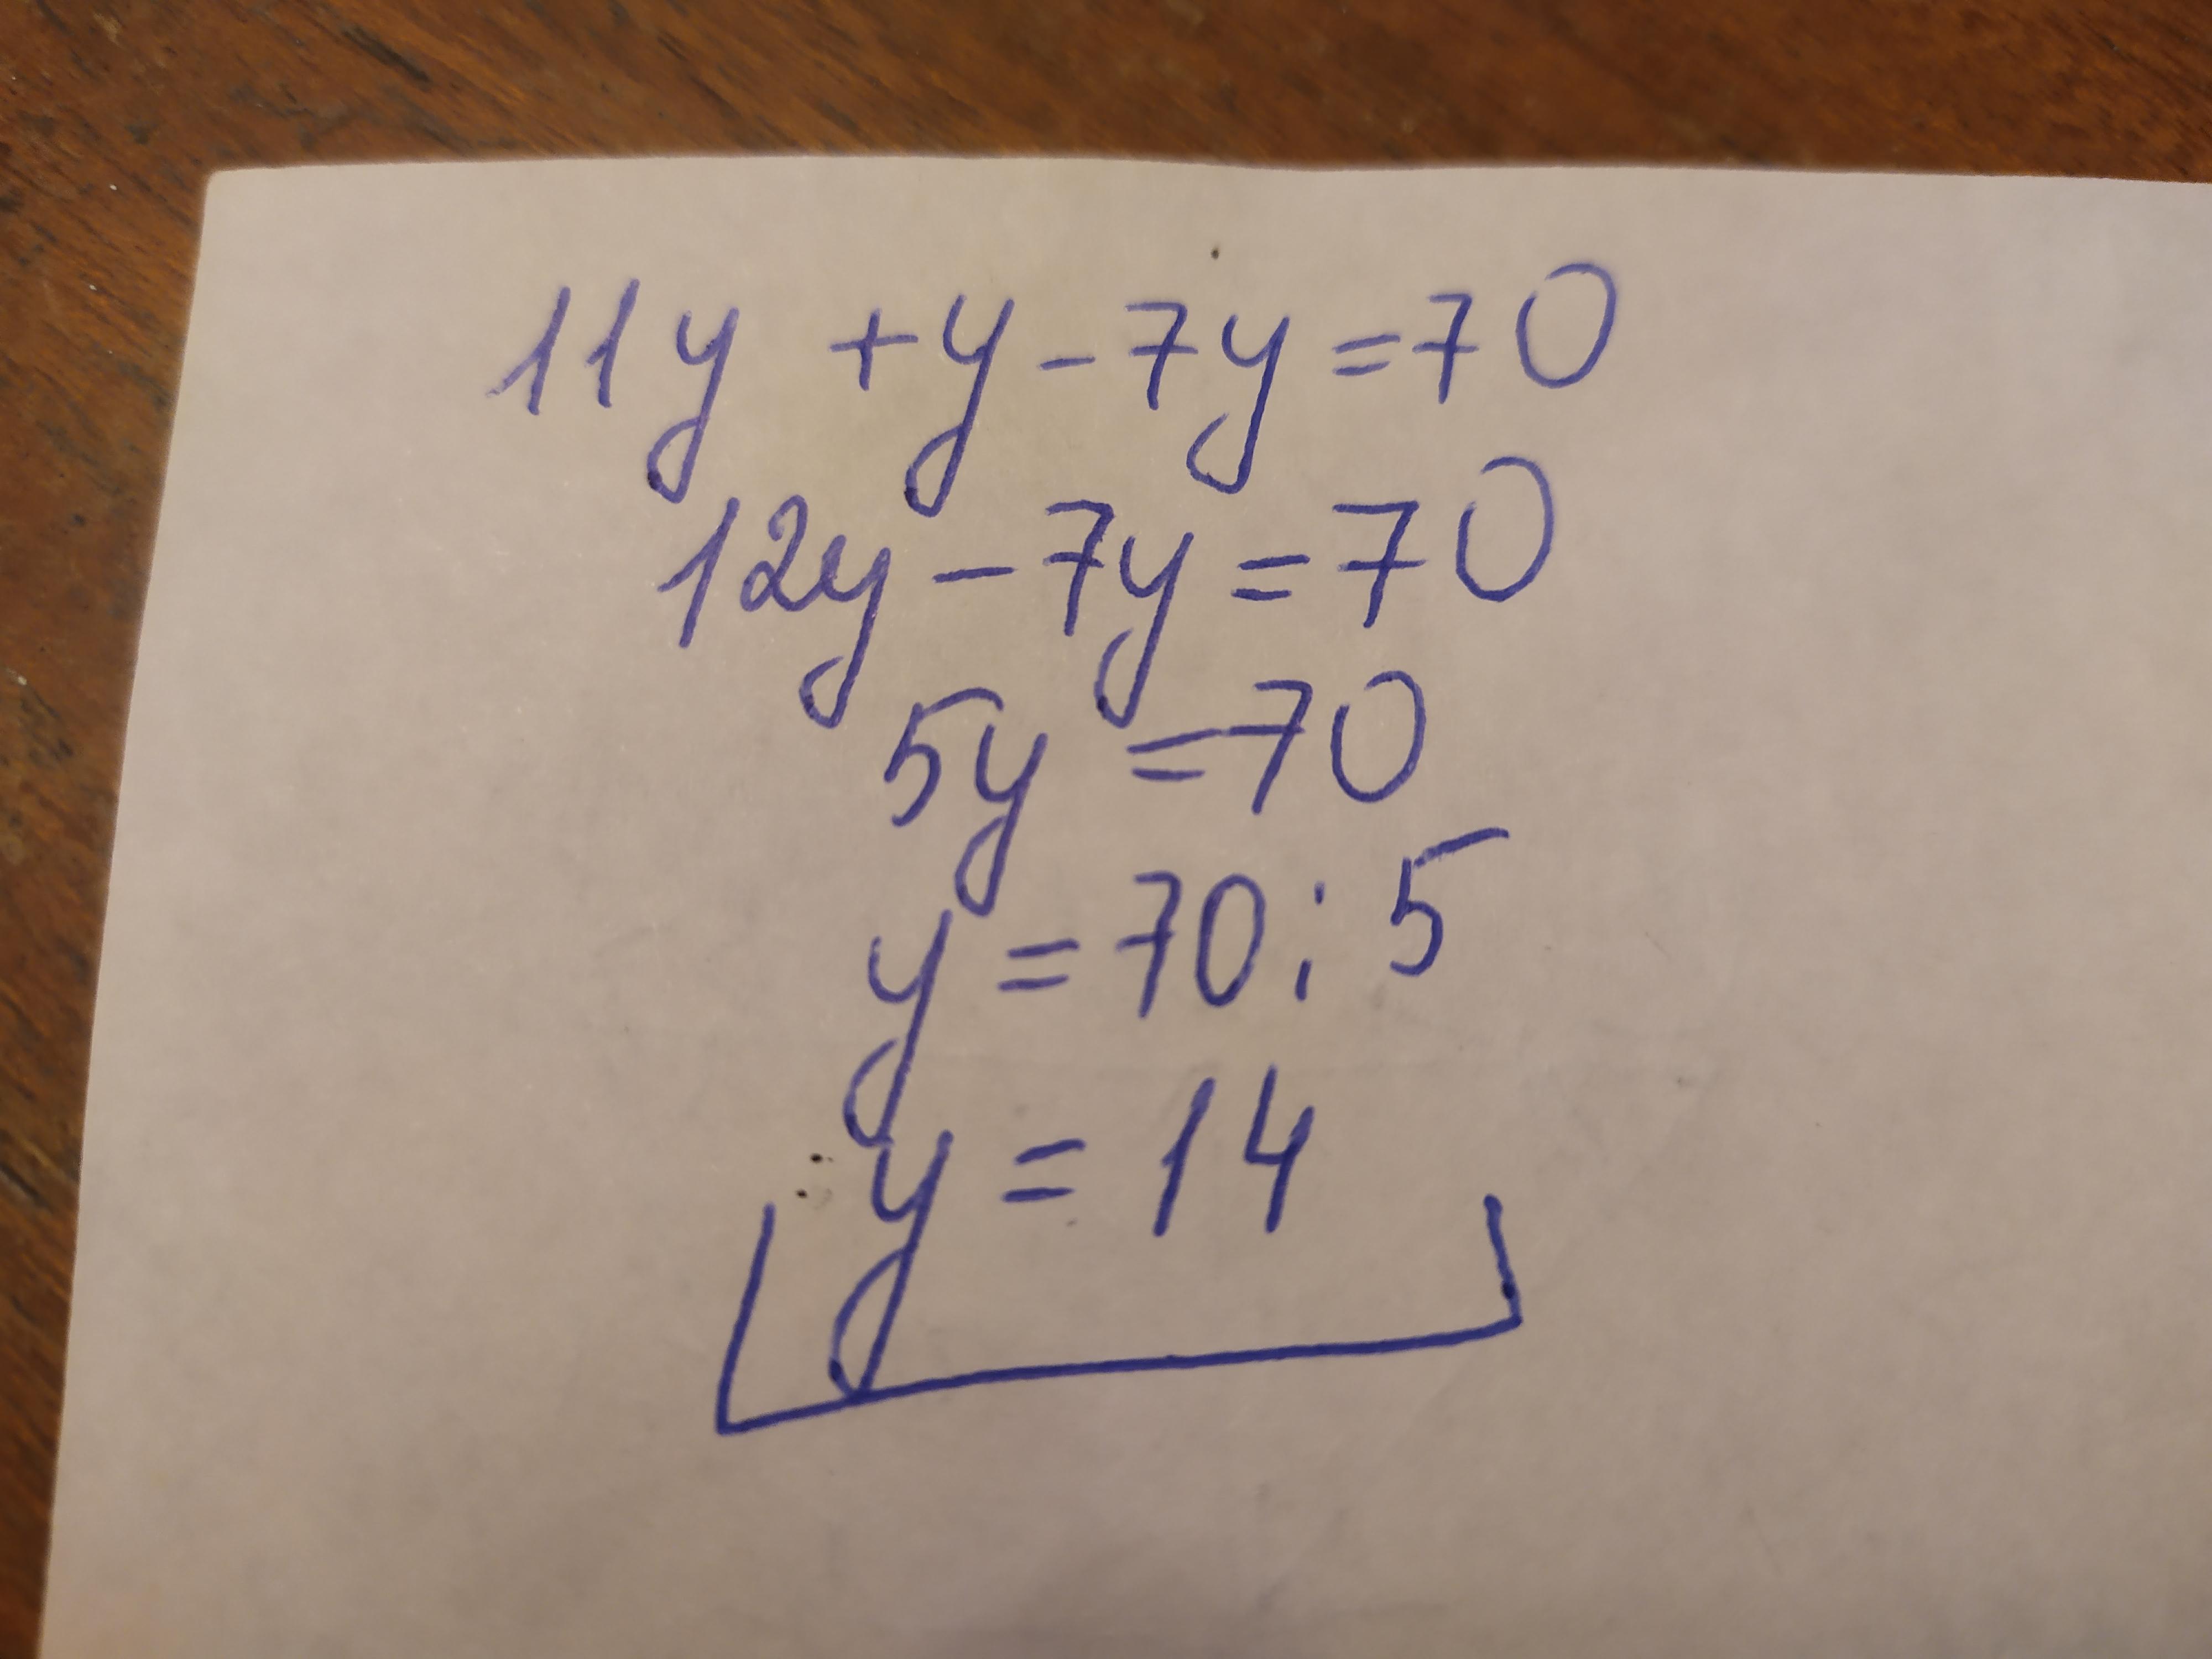 11y + y - 7y = 70
12y - 7y = 70
5y = 70
y = 70 : 5
y = 14